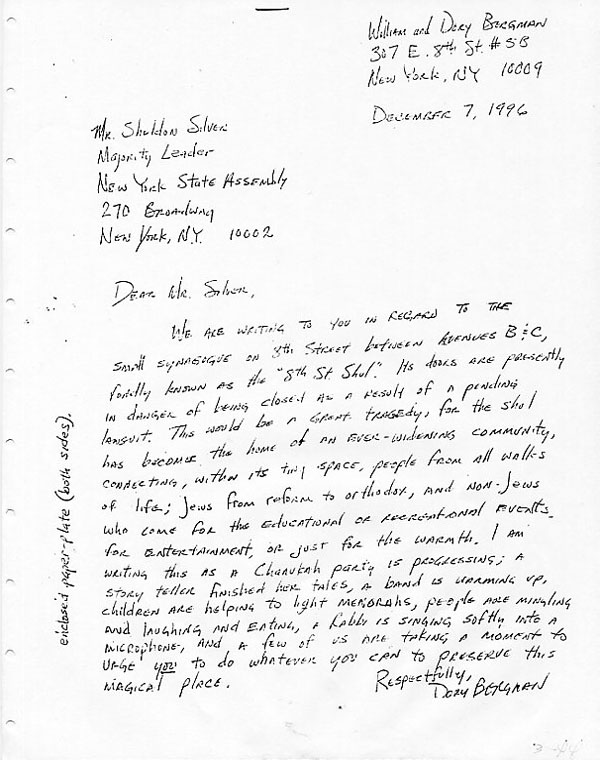 William and Dory Bergman
307 E. 8th St. #5B
New York, NY 10009
December 7, 1996
Mr. Sheldon Silver
Majority Leader
New York State Assembly
270 Broadway
New York, N.Y. 10002
Dear Mr. Silver,
We are writing to you in regard to the
small synagogue on 8th Street between Avenues B & C,
fondly known as the "8th St. Shul." Its doors are presently
in danger of being closed as a result of a pending
lawsuit. This would be a great tragedy, for the shul
has become the home of an ever-widening community,
connecting, within its tiny space, people from all walks
of life; Jews from reform to orthodox, and non-Jews
who come for the educational or recreational events.
for entertainment, or just for the warmth. I am
writing this as a Chanukah party is progressing; a
story teller finished her tales, a band is warming up,
children are helping to light menorahs, people are mingling
and laughing and eating, a Rabbi is singing softly into a
microphone, and a few of us are taking a moment to
urge you to do whatever you can to preserve this
magical place.
Respectfully,
Dory Bergman
enclosed paper-plate (both sides).